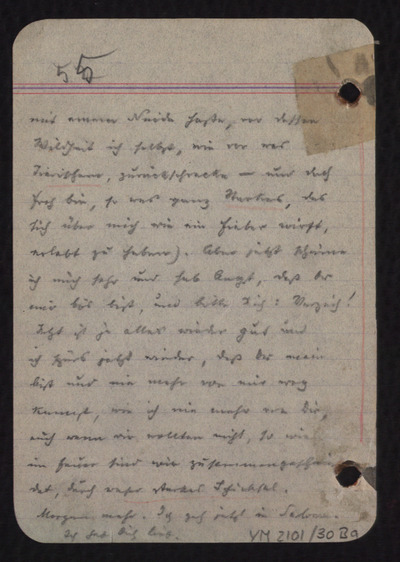 55
mit einem Neide hasse, vor dessen
Wildheit ich selbst, wie vor was
Tierischem, zurückschrecke – und doch
froh bin, so was ganz Starkes, das
sich über mich wie ein Fieber wirft,
erlebt zu haben). Aber jetzt schäme
ich mich sehr und hab Angst, daß Du
mir bös bist, und bitte Dich: Verzeih!
Jetzt ist ja alles wieder gut und
ich spürs jetzt wieder, daß Du mein
bist und nie mehr von mir weg
kannst, wie ich nie mehr von Dir,
auch wenn wir wollten nicht, so
im Feuer sind wir
det, durch unser starkes Schicksal.
Morgen mehr. Ich geh jetzt in Salome.
Ich hab Dich lieb.
VM 2101/30 Ba